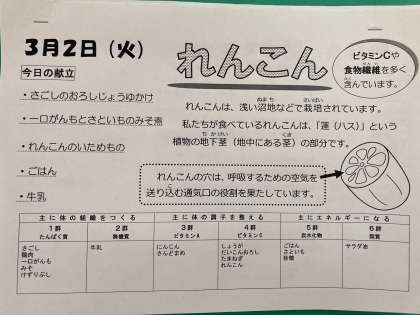 3月2日（火）
れんこん
ビタミンCや
食物繊維を多く
含んでいます。
今日の献立
・さごしのおろしじょうゆかけ
・一口がんもとさといものみそ煮
・れんこんのいためもの
・ごはん
・牛乳
れんこんは、浅い沼地などで栽培されています。
私たちが食べているれんこんは、「蓮（ハス）」という
植物の地下茎（地中にある茎）の部分です。
れんこんの穴は、呼吸するための空気を
送り込む通気口の役割を果たしています。
主に体の組織をつくる 主に体の調子を整える 主にエネルギーになる
1群 2群 3群 4群 5群 6群
たんぱく質 無機質 ビタミンA ビタミンC 炭水化物 脂質
さごし 牛乳 にんじん しょうが ごはん サラダ油
鶏肉 さんどまめ だいこんおろし さといも
一口がんも たまねぎ 砂糖
みそ れんこん
けずりぶし